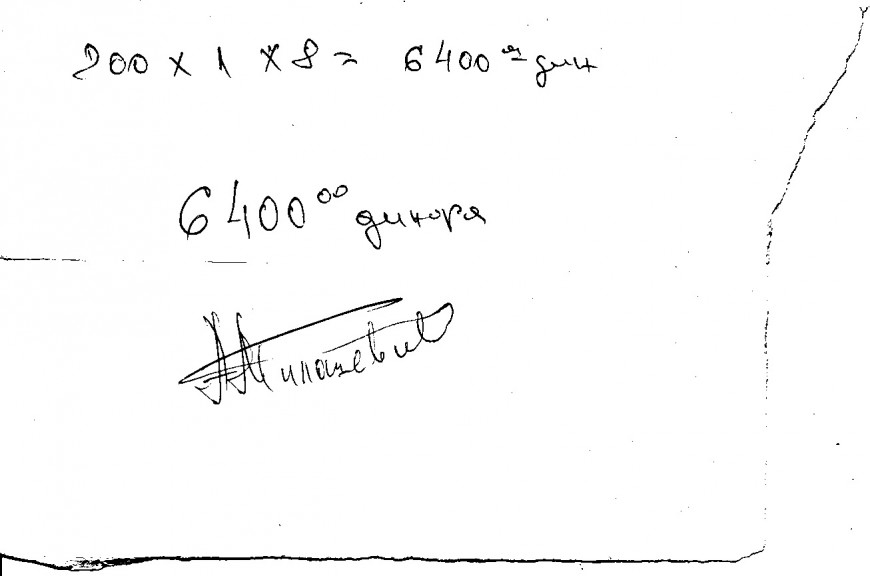 200 x 1 x 8 = 6400 00 дин
6400 00 динара
Милошевић